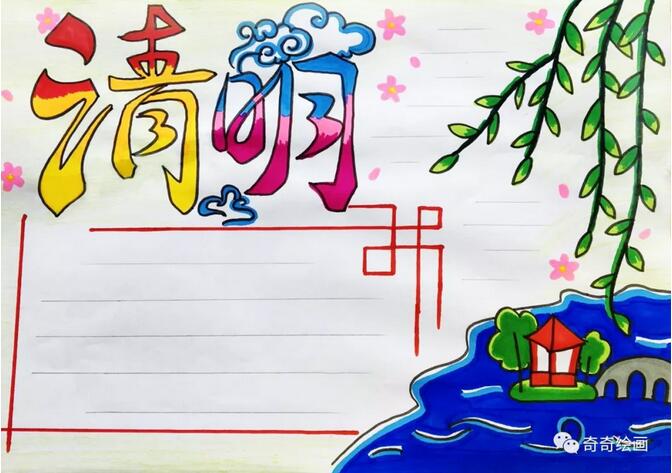 清明
奇奇绘画